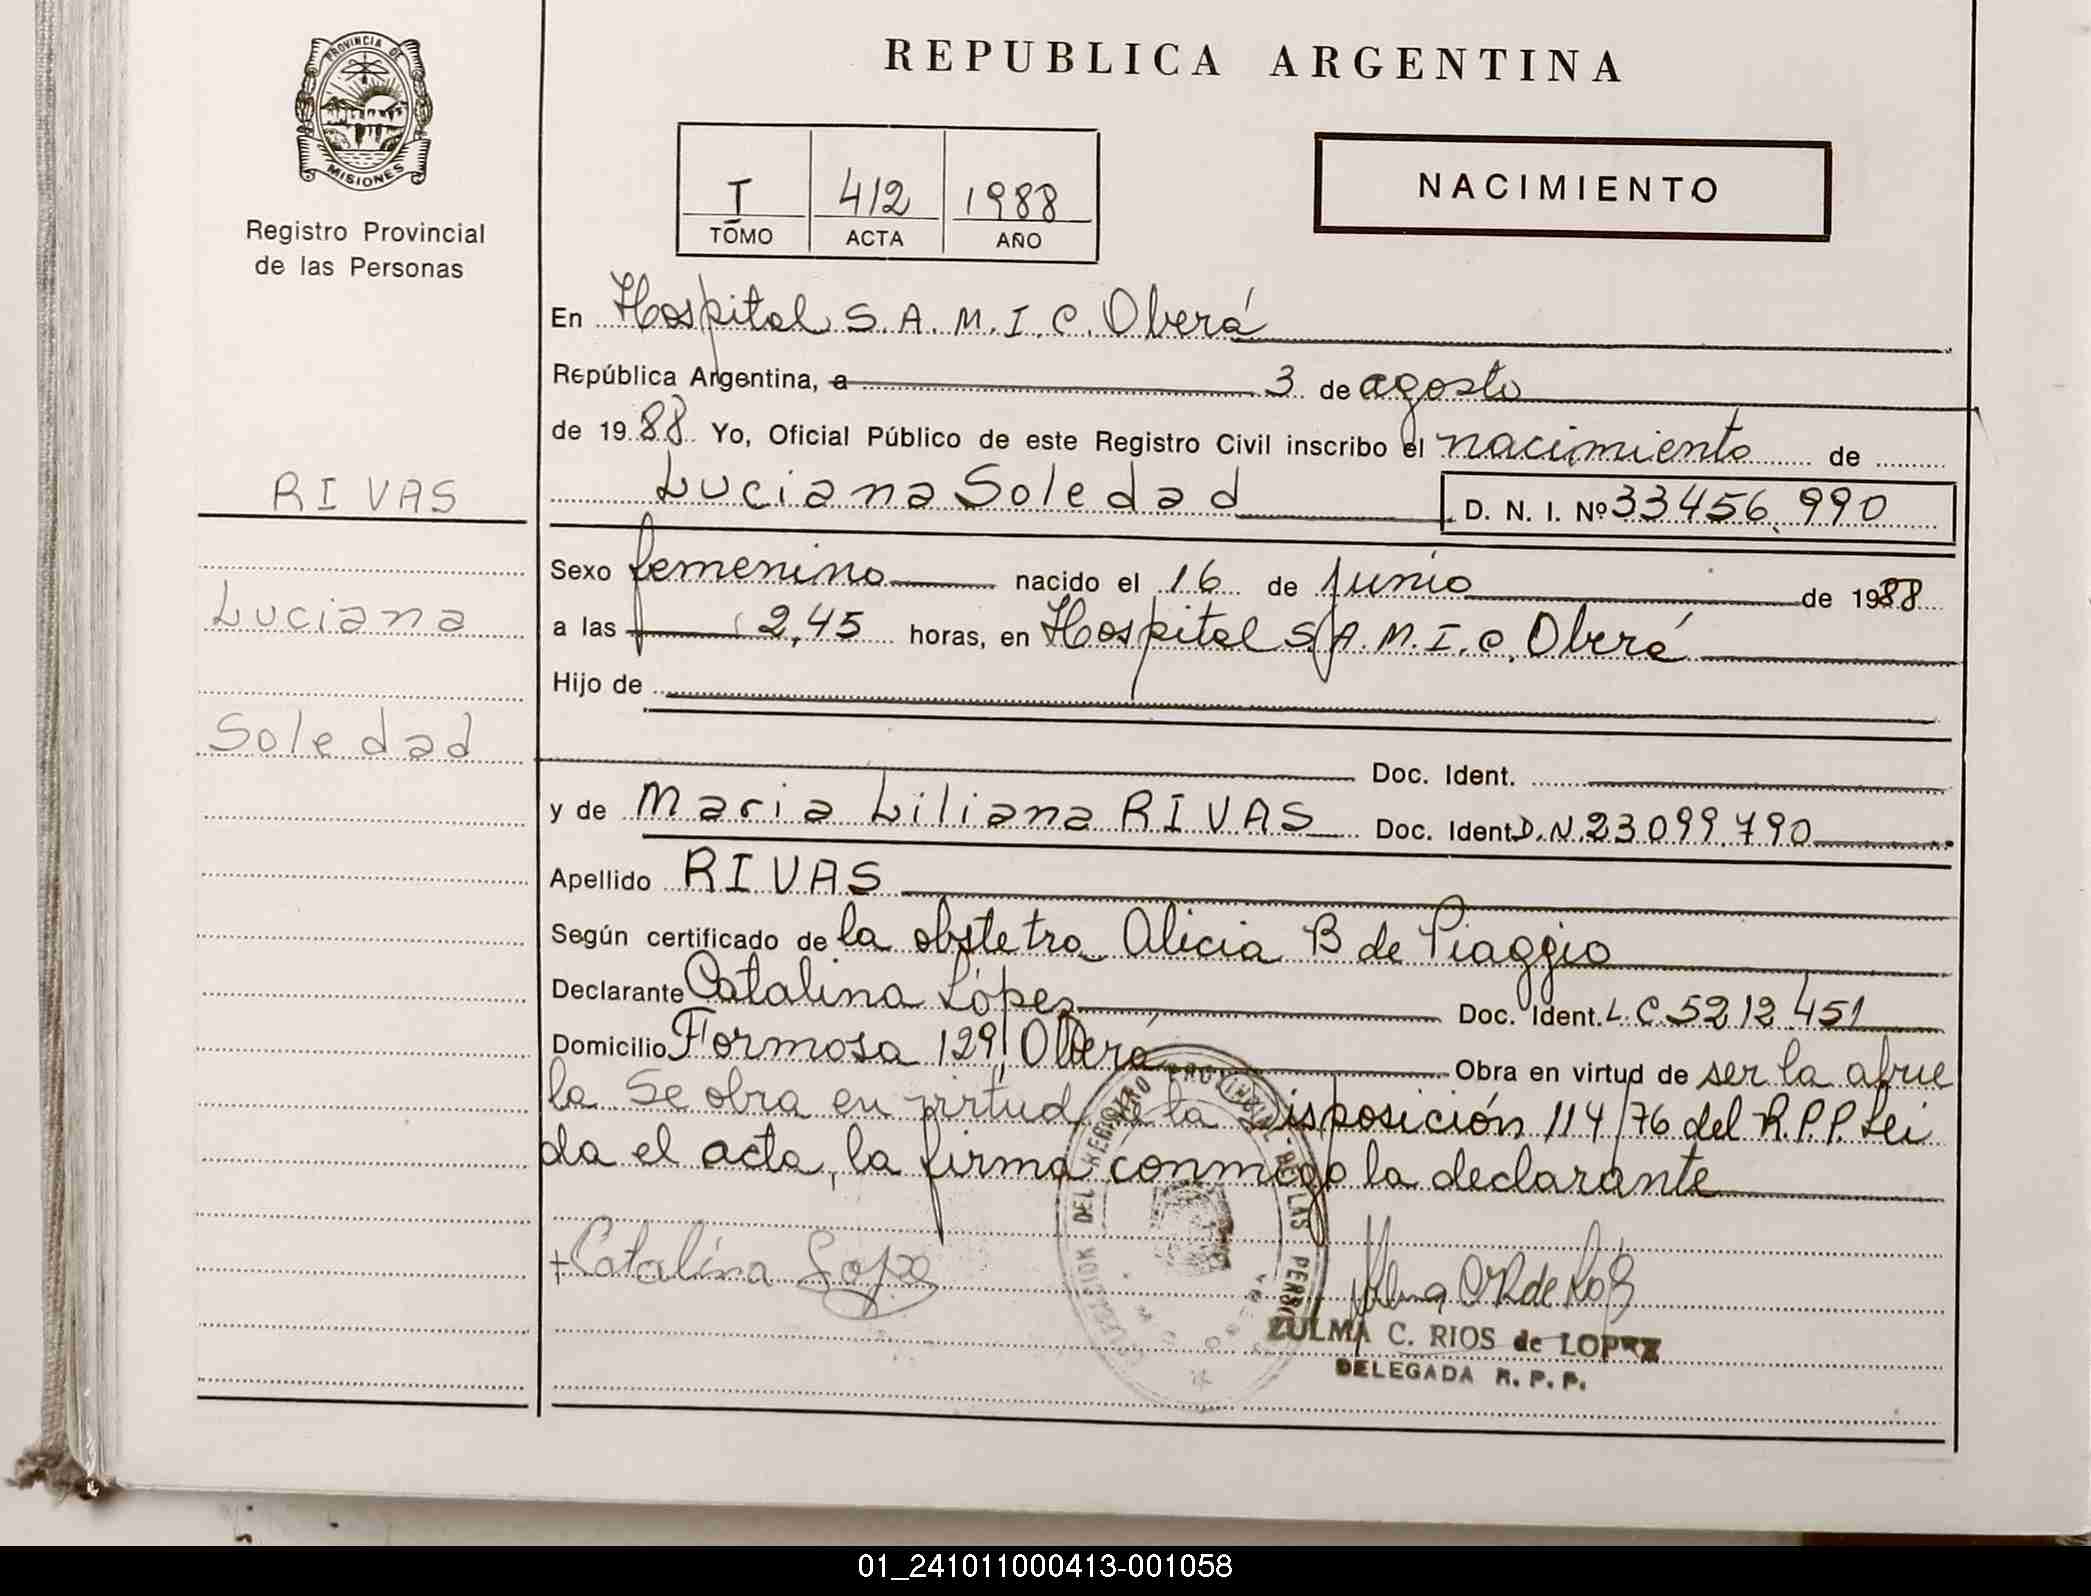 PROVINCIA DE
MISIONES
Registro Provincial
de las Personas
REPUBLICA ARGENTINA
I 412 1988
TOMO ACTA AÑO
NACIMIENTO
En Hospital S.A.M.I.C. Oberá
República Argentina, a 3 de agosto
de 1988 Yo, Oficial Público de este Registro Civil inscribo el nacimiento de
Luciana Soledad D. N. I. Nº 33456.990
RIVAS
Luciana
Soledad
Sexo femenino nacido el 16 de junio de 1988
a las 2,45 horas, en Hospital S.A.M.I.C. Oberá
Hijo de
Doc. Ident.
y de Maria Liliana RIVAS Doc. Ident. D.N. 23.099.790
Apellido RIVAS
Según certificado de la obstetra Alicia B de Piaggio
Declarante Catalina López Doc. Ident. L C 5212451
Domicilio Formosa 129, Oberá Obra en virtud de ser la abue
la Se obra en virtud de la Disposición 114/76 del R.P.P. Lei
da el acta, la firma conmigo la declarante
+Catalina Lopez
DEL REGISTRO PROVINCIAL DE LAS PERSO
ZULMA C. RIOS de LOPEZ
DELEGADA R. P. P.
01_241011000413-001058